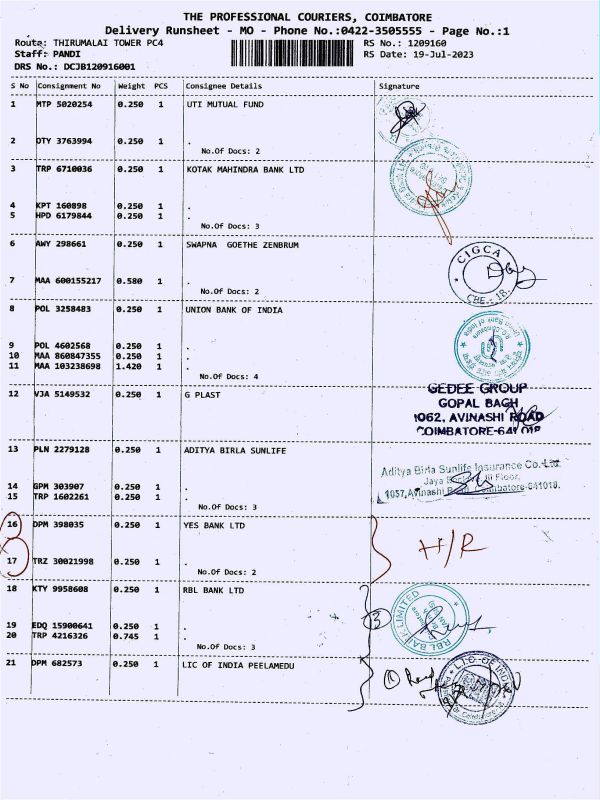 THE PROFESSIONAL COURIERS, COIMBATORE
Delivery Runsheet - MO - Phone No.:0422-3505555 - Page No.:1
Route: THIRUMALAI TOWER PC4 RS No.: 1209160
Staff: PANDI RS Date: 19-Jul-2023
DRS No.: DCJB120916001
S No Consignment No Weight PCS Consignee Details Signature
1 MTP 5020254 0.250 1 UTI MUTUAL FUND
2 DTY 3763994 0.250 1 .
No.Of Docs: 2
3 TRP 6710036 0.250 1 KOTAK MAHINDRA BANK LTD
4 KPT 160898 0.250 1 .
5 HPD 6179844 0.250 1 .
No.Of Docs: 3
6 AWY 298661 0.250 1 SWAPNA GOETHE ZENBRUM
CIGCA
CBE - 18.
7 MAA 600155217 0.580 1 .
No.Of Docs: 2
8 POL 3258483 0.250 1 UNION BANK OF INDIA
Union Bank of India
9 POL 4602568 0.250 1 .
10 MAA 860847355 0.250 1 .
11 MAA 103238698 1.420 1 .
No.Of Docs: 4
12 VJA 5149532 0.250 1 G PLAST
GEDEE GROUP
GOPAL BAGH
1062, AVINASHI ROAD
COIMBATORE-641 018
13 PLN 2279128 0.250 1 ADITYA BIRLA SUNLIFE
Aditya Birla Sunlife Insurance Co.Ltd.
Jaya III Floor,
1057, Avinashi Road, Coimbatore-641018.
14 GPM 303907 0.250 1 .
15 TRP 1602261 0.250 1 .
No.Of Docs: 3
16 DPM 398035 0.250 1 YES BANK LTD
H/R
17 TRZ 30021998 0.250 1 .
No.Of Docs: 2
18 KTY 9958608 0.250 1 RBL BANK LTD
RBL BANK LIMITED
3
19 EDQ 15900641 0.250 1 .
20 TRP 4216326 0.745 1 .
No.Of Docs: 3
21 DPM 682573 0.250 1 LIC OF INDIA PEELAMEDU
L.I.C. OF INDIA